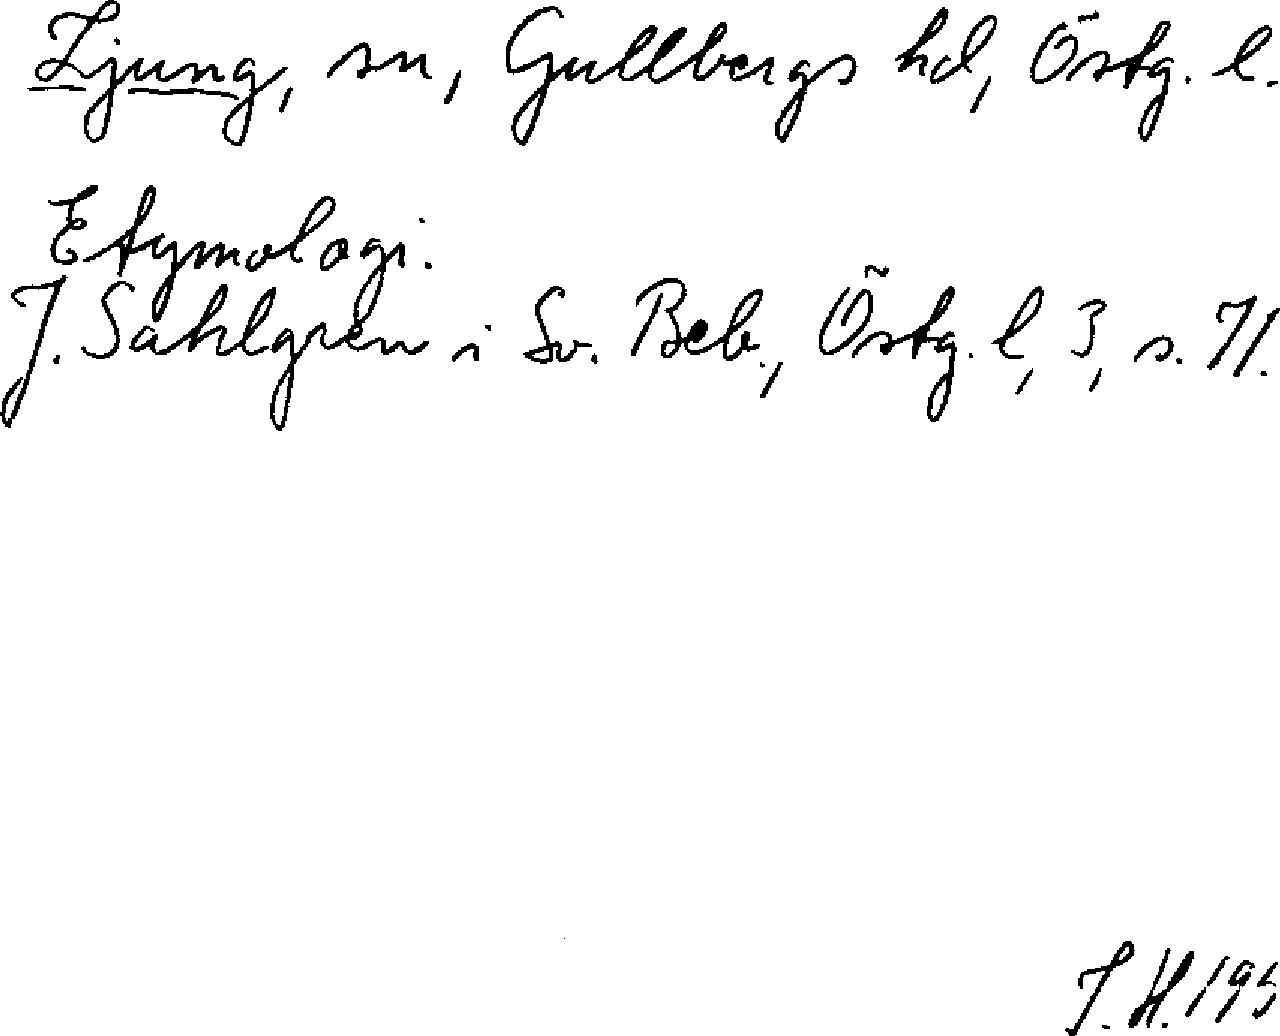 Ljung, sn, Gullbergs hd, Östg. l.
Etymologi.
J. Sahlgren i Sv. Beb., Östg. l, 3, s. 71.
J. H. 195